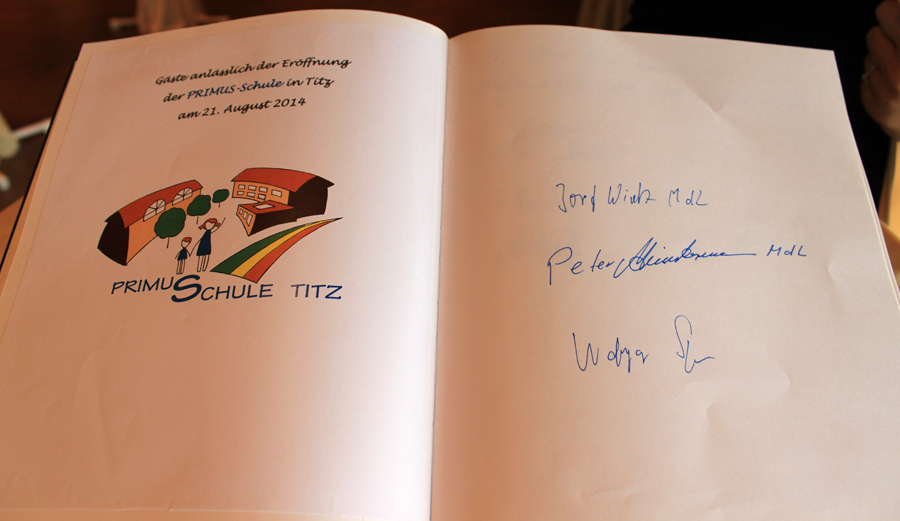 Gäste anlässlich der Eröffnung
der PRIMUS-Schule in Titz
am 21. August 2014
PRIMUSCHULE TITZ
Josef Wirtz MdL
Peter MdL